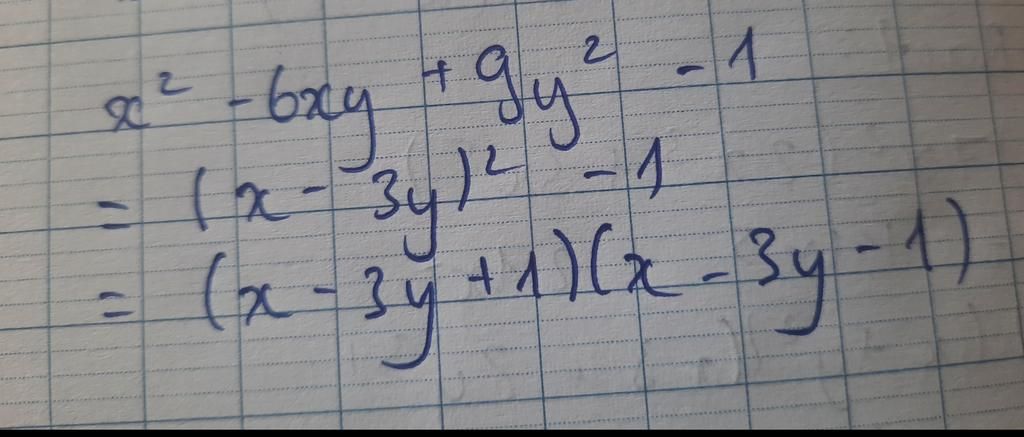 x² - 6xy + 9y² - 1
= (x - 3y)² - 1
= (x - 3y + 1)(x - 3y - 1)